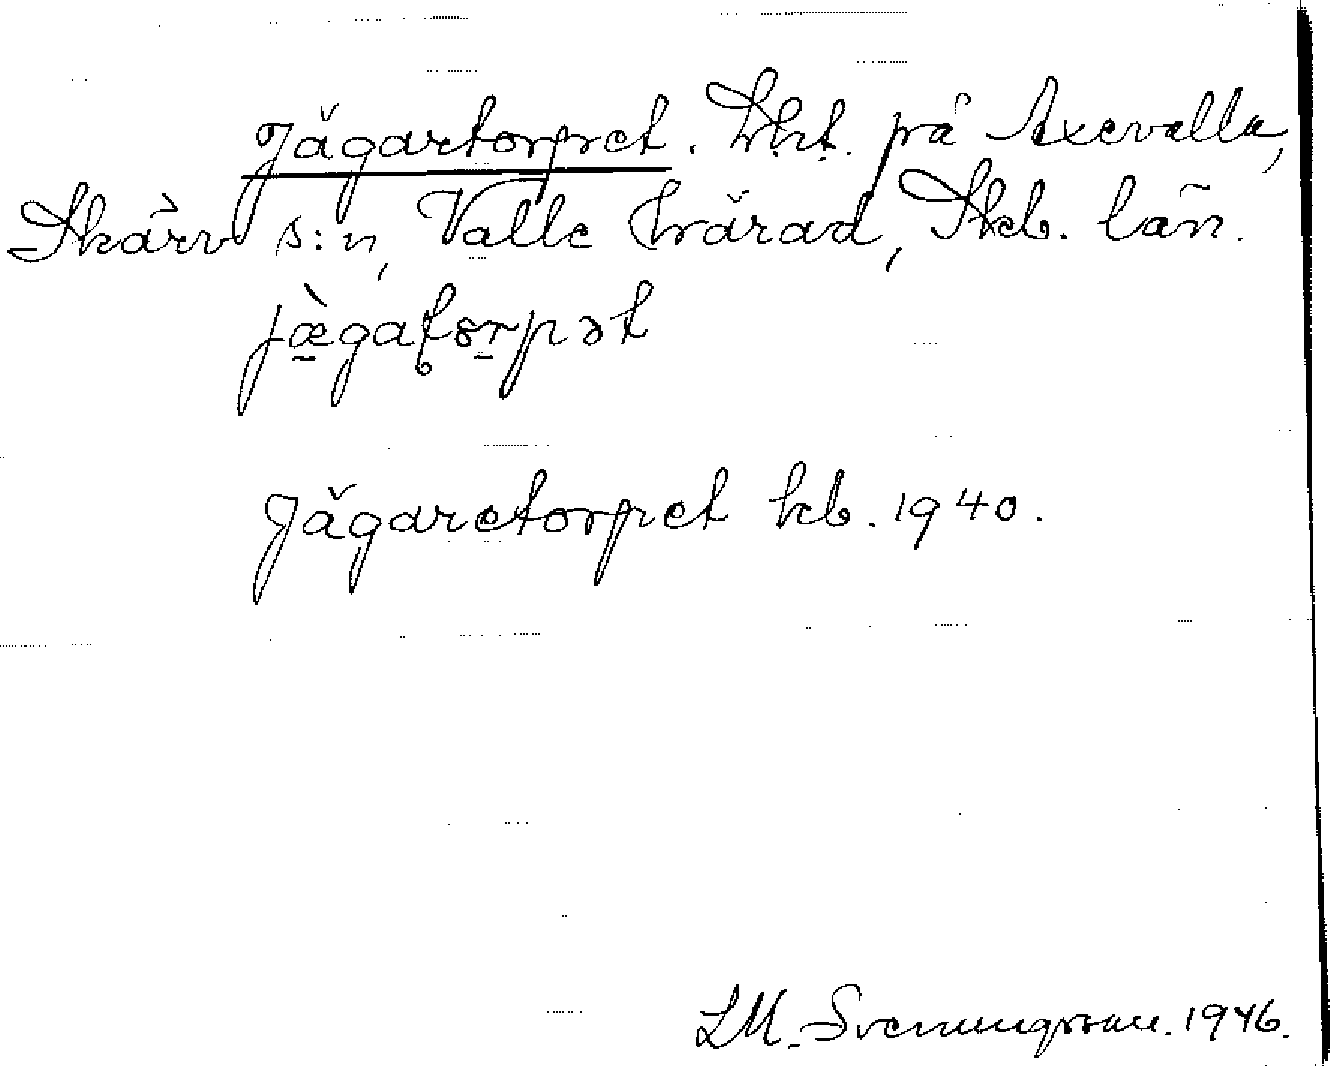 Jägartorpet. Lht. på Axevalla,
Skärv s:n, Valle härad, Skb. län.
jæ̀gaʈorpət
Jägaretorpet kb. 1940.
LM. Svenungsson. 1946.